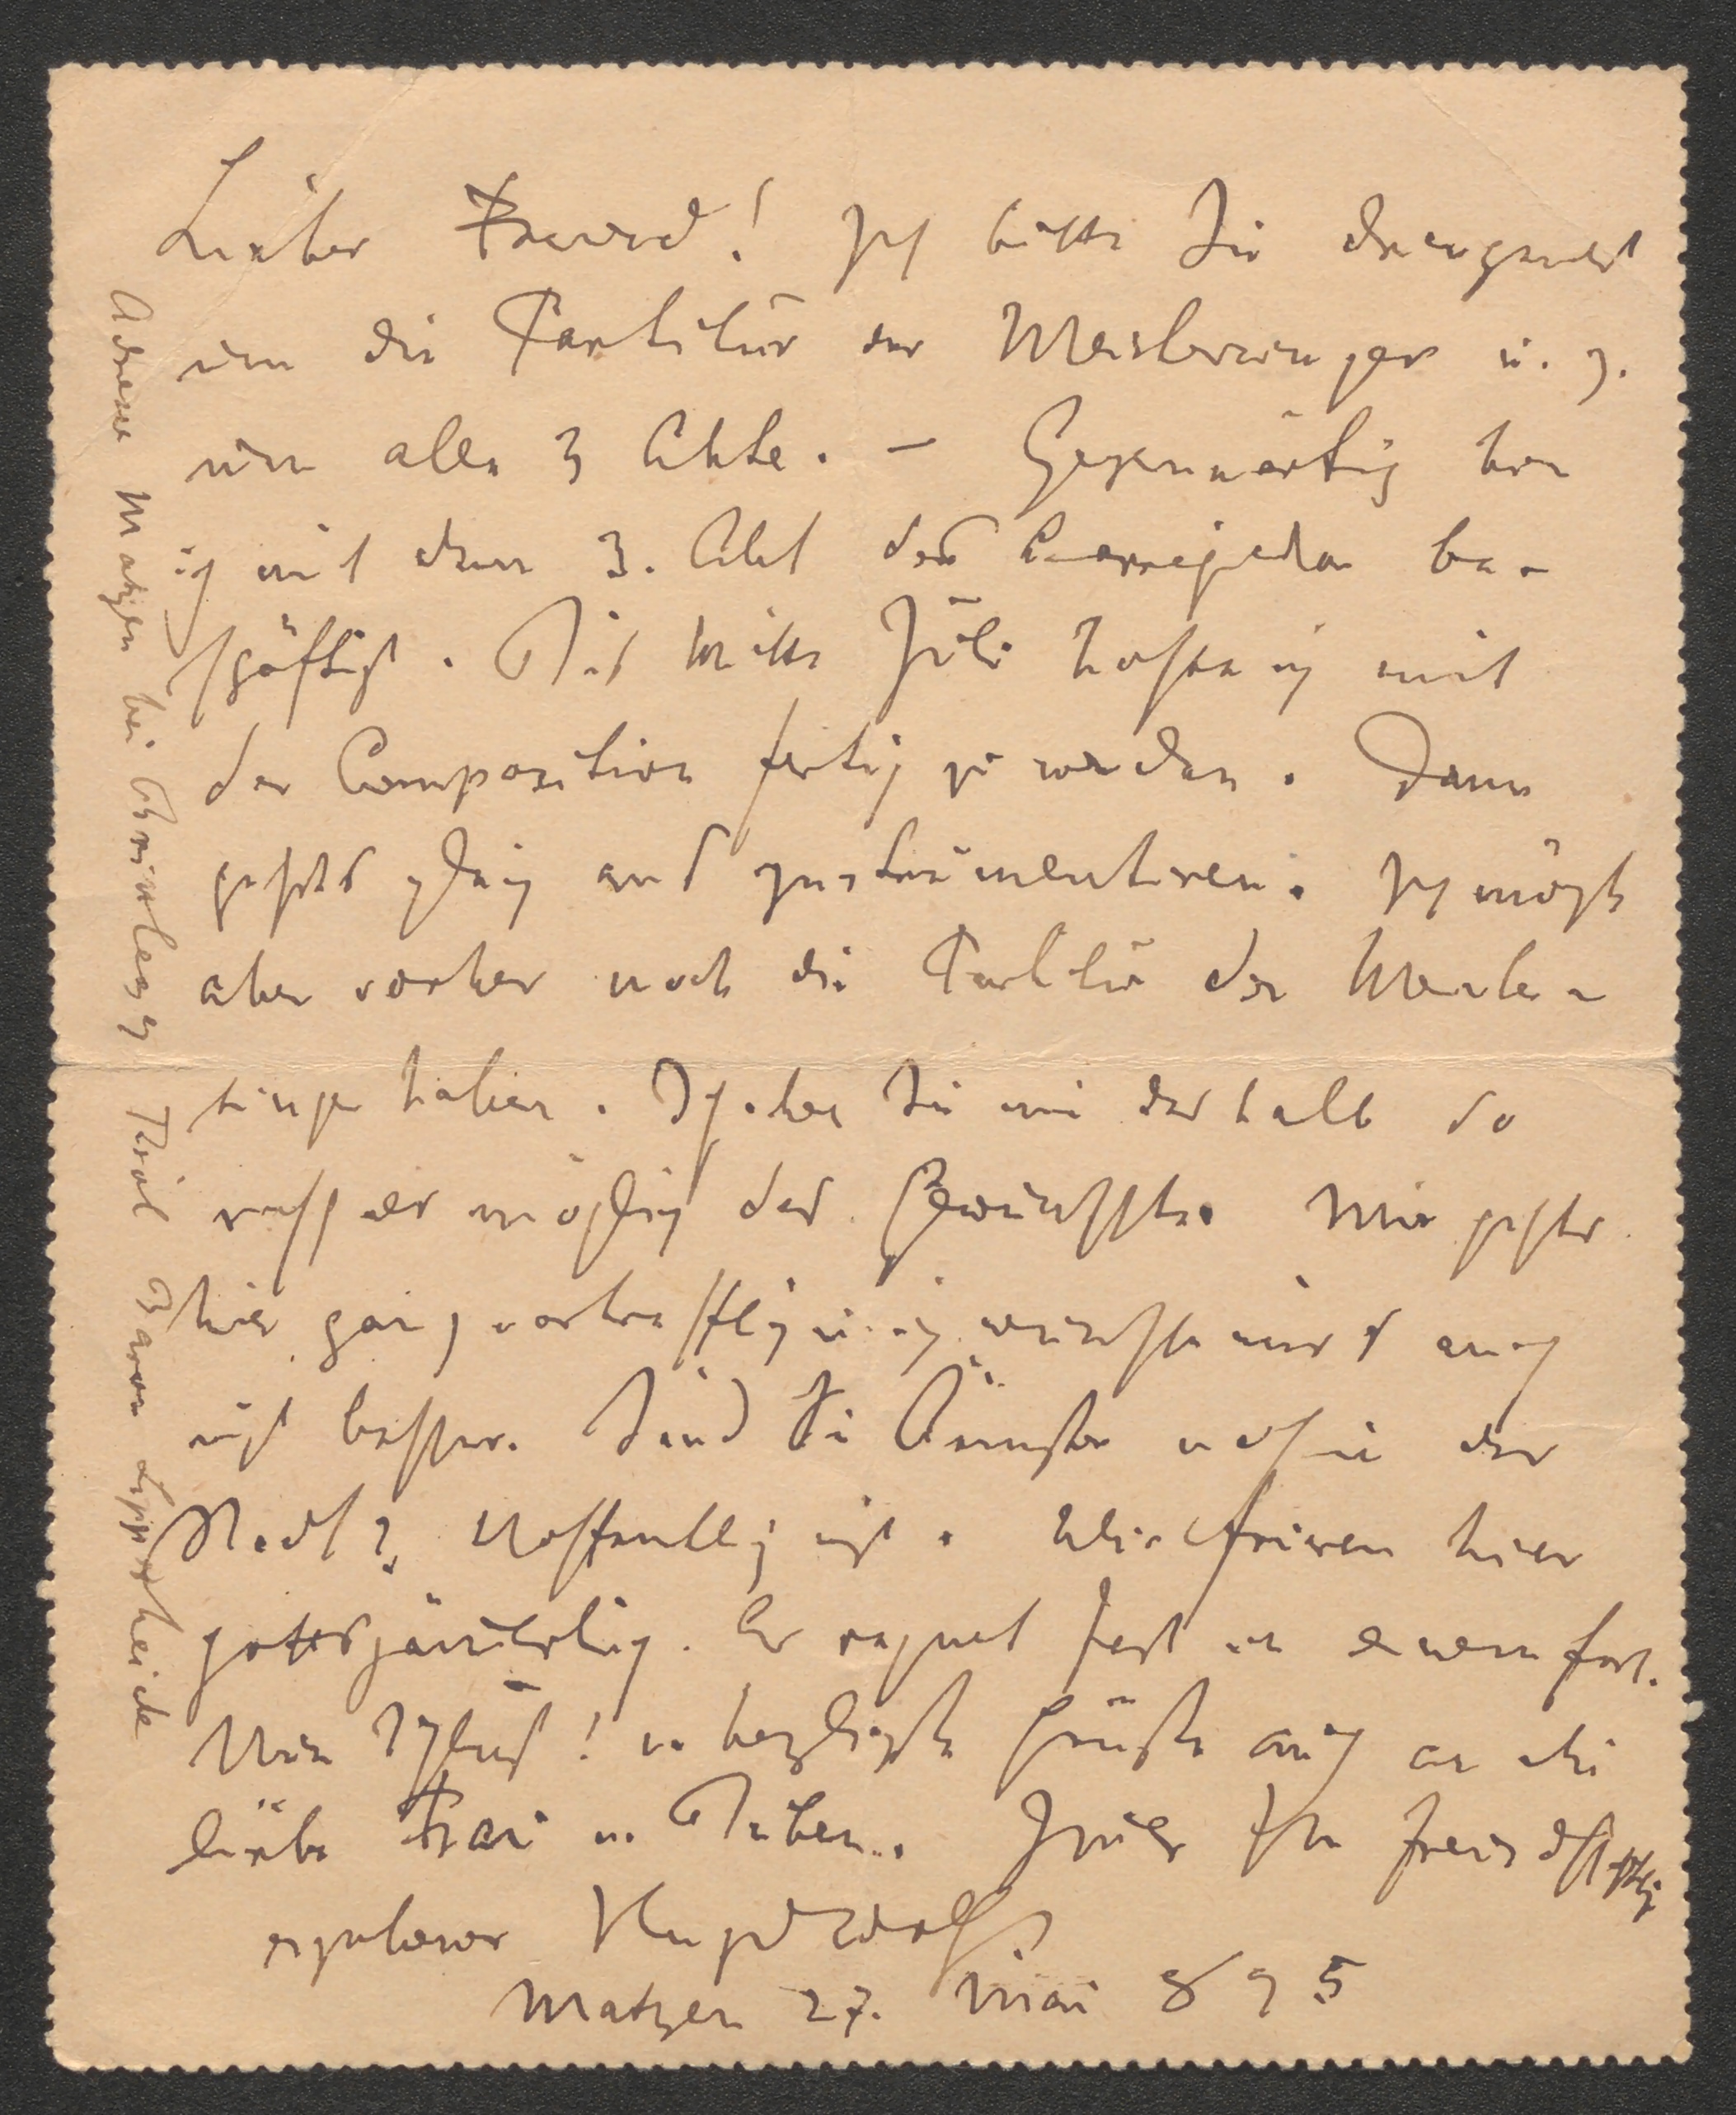 Lieber Freund! Ich bitte Sie dringendst
um die Partitur der Meistersinger u. z.
um alle 3 Akte. – Gegenwärtig bin
ich mit dem 3. Akt des Corregidor be-
schäftigt. Bis Mitte Juli hoffe ich mit
der Composition fertig zu werden. Dann
gehts gleich ans Instrumentiren. Ich möchte
aber vorher noch die Partitur der Meister-
singer haben. Schicken Sie mir deshalb so
rasch als möglich das Gewünschte. Mir gehts
hier ganz vortrefflich u. ich wünsche mirs auch
nicht besser. Sind Sie Ärmster noch in der
Stadt? Hoffentlich nicht. Wir frieren hier
gottsjämmerlich. Es regnet fast in einem fort.
Nun Schluß! u. herzlichste Grüße auch an die
liebe Frau u. Buben. Immer Ihr freundschaftlich
ergebener Hugo Wolf
Matzen 27. Mai 895
Adresse Matzen bei Brixlegg Tirol Baron Lipperheide